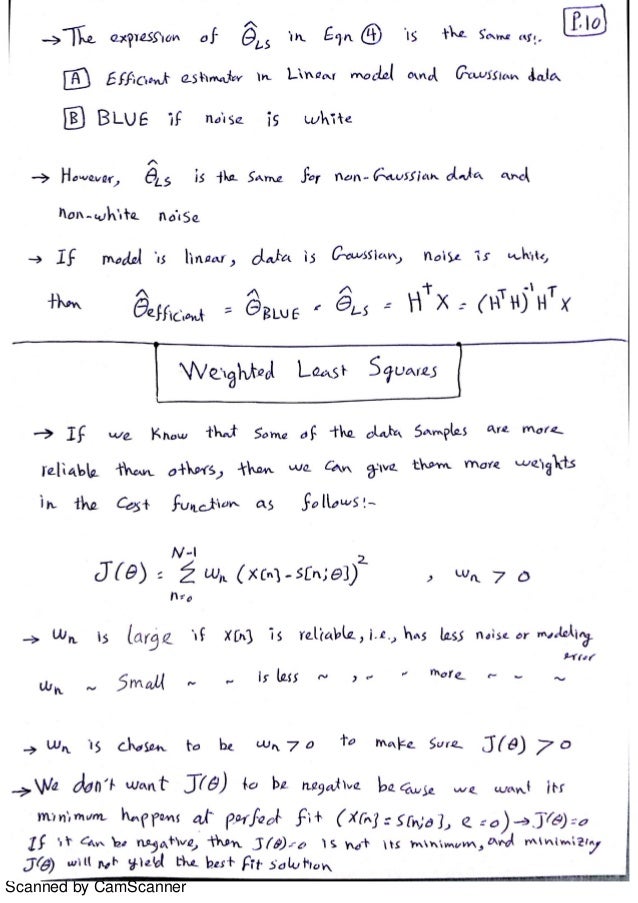 P.10
→ The expression of θ̂_LS in Eqn ④ is the same as:-
[A] Efficient estimator in Linear model and Gaussian data
[B] BLUE if noise is white
→ However, θ̂_LS is the same for non-Gaussian data and
non-white noise
→ If model is linear, data is Gaussian, noise is white,
then θ̂_efficient = θ̂_BLUE = θ̂_LS = H^† X = (H^T H)^-1 H^T X
Weighted Least Squares
→ If we know that some of the data samples are more
reliable than others, then we can give them more weights
in the cost function as follows:-
J(θ) = Σ_{n=0}^{N-1} w_n (X[n] - S[n;θ])^2 , w_n > 0
→ w_n is large if X[n] is reliable, i.e., has less noise or modeling
error
w_n ~ small ~ ~ is less ~ , ~ ~ more ~ ~ ~
→ w_n is chosen to be w_n > 0 to make sure J(θ) > 0
→ We don't want J(θ) to be negative because we want its
minimum happens at perfect fit (X[n] = S[n;θ], e = 0) → J(θ) = 0
If it can be negative, then J(θ)=0 is not its minimum, and minimizing
J(θ) will not yield the best fit solution
Scanned by CamScanner